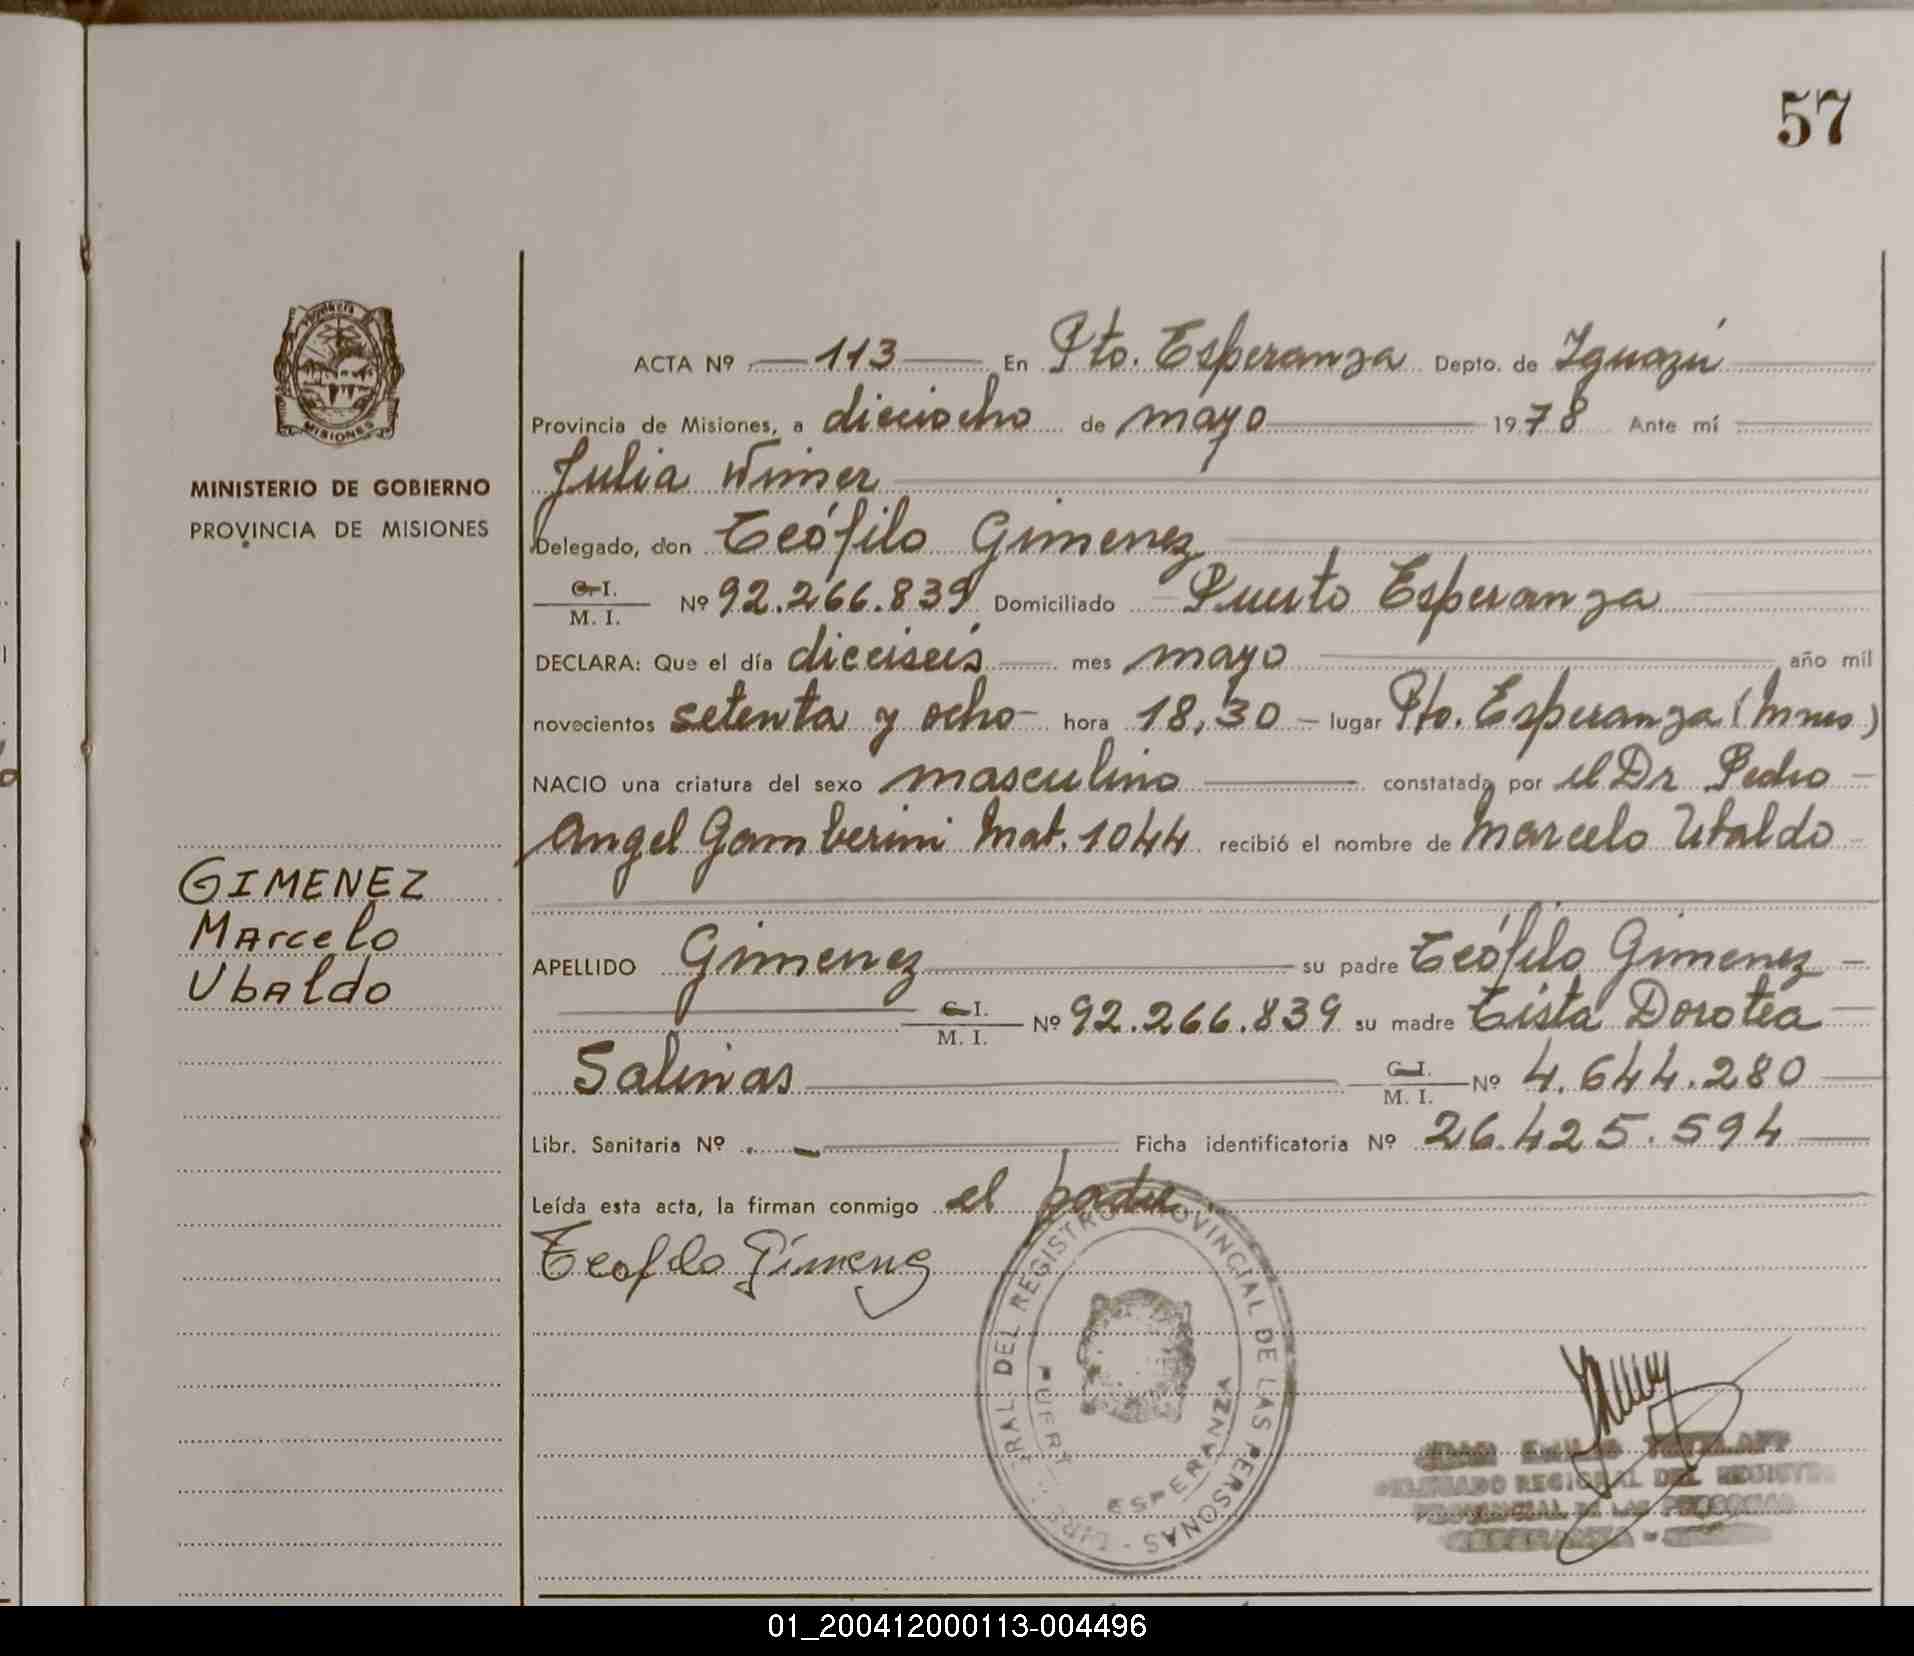 57
MISIONES
MINISTERIO DE GOBIERNO
PROVINCIA DE MISIONES
GIMENEZ
Marcelo
Ubaldo
ACTA Nº 113 En Pto. Esperanza Depto. de Iguazú
Provincia de Misiones, a dieciocho de mayo 1978 Ante mí
Julia Wimer
Delegado, don Teófilo Gimenez
C. I.
M. I. Nº 92.266.839 Domiciliado Puerto Esperanza
DECLARA: Que el día dieciseis mes mayo año mil
novecientos setenta y ocho hora 18,30 lugar Pto. Esperanza (Mnes)
NACIO una criatura del sexo masculino constatada por el Dr Pedro
Angel Gamberini Mat. 1044 recibió el nombre de Marcelo Ubaldo
APELLIDO Gimenez su padre Teófilo Gimenez
C. I.
M. I. Nº 92.266.839 su madre Tista Dorotea
Salinas C. I.
M. I. Nº 4.644.280
Libr. Sanitaria Nº - Ficha identificatoria Nº 26.425.594
Leída esta acta, la firman conmigo el padre
Teofilo Gimenez
DEL REGISTRO PROVINCIAL DE LAS PERSONAS
PUERTO ESPERANZA
DELEGADO REGIONAL DEL REGISTRO
PROVINCIAL DE LAS PERSONAS
01_200412000113-004496